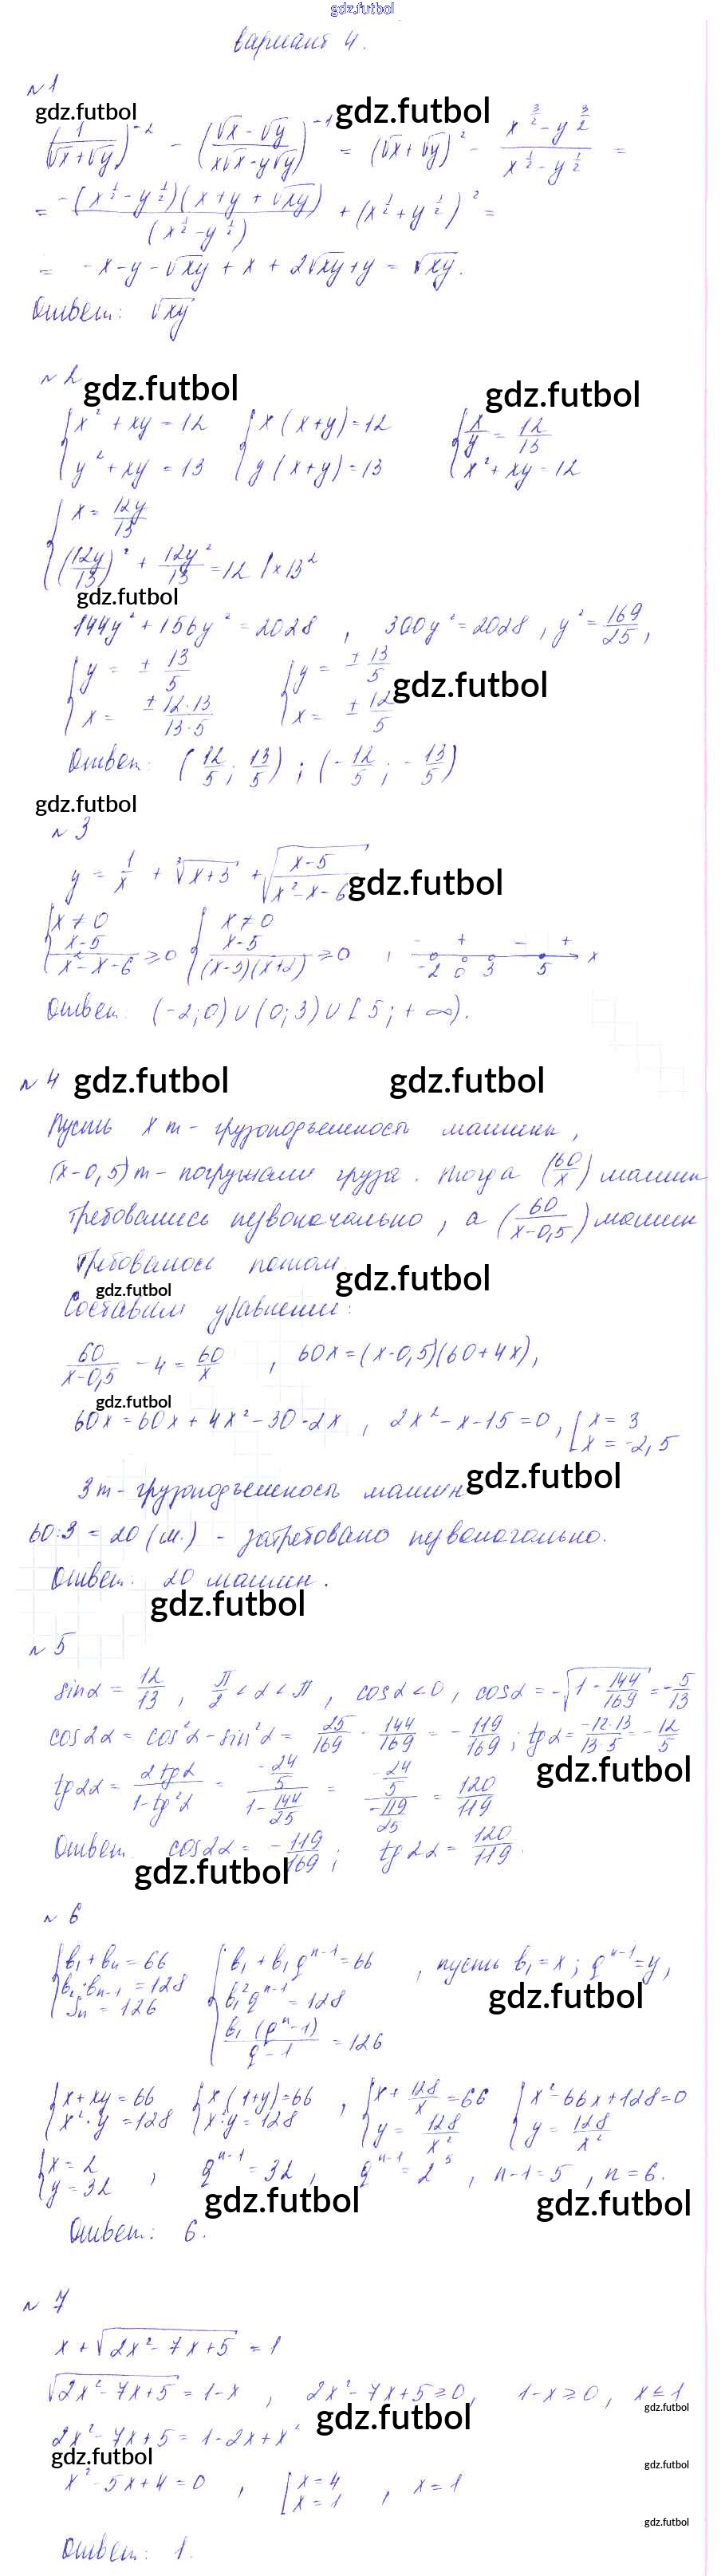 gdz.futbol
Вариант 4.
№1
gdz.futbol gdz.futbol
(1/(√x+√y))^-2 - ((√x-√y)/(x√x-y√y))^-1 = (√x+√y)^2 - (x^(3/2)-y^(3/2))/(x^(1/2)-y^(1/2)) =
= -(x^(1/2)-y^(1/2))(x+y+√xy)/(x^(1/2)-y^(1/2)) + (x^(1/2)+y^(1/2))^2 =
= -x-y-√xy+x+2√xy+y=√xy.
Ответ: √xy
№2
gdz.futbol gdz.futbol
{x²+xy=12 {x(x+y)=12 {x/y=12/13
{y²+xy=13 {y(x+y)=13 {x²+xy=12
{x=12y/13
{(12y/13)²+12y²/13=12 |×13²
gdz.futbol
144y²+156y²=2028, 300y²=2028, y²=169/25,
{y=±13/5 {y=±13/5
{x=±12·13/13·5 {x=±12/5
gdz.futbol
Ответ: (12/5; 13/5); (-12/5; -13/5)
gdz.futbol
№3
y=1/x+∛(x+3)+√((x-5)/(x²-x-6))
gdz.futbol
{x≠0 {x≠0
{(x-5)/(x²-x-6)≥0 {(x-5)/((x-3)(x+2))≥0, - + - + x
-2 0 3 5
Ответ: (-2;0)∪(0;3)∪[5;+∞).
№4 gdz.futbol gdz.futbol
Пусть x т - грузоподъемность машины,
(x-0,5) т - погружали груза. Тогда (60/x) машин
требовались первоначально, а (60/(x-0,5)) машин
требовалось потом.
gdz.futbol
gdz.futbol
Составим уравнение:
60/(x-0,5) -4=60/x, 60x=(x-0,5)(60+4x),
gdz.futbol
60x=60x+4x²-30-2x, 2x²-x-15=0, [x=3
[x=-2,5
3 т - грузоподъемность машин
gdz.futbol
60:3=20 (м.) - затребовано первоначально.
Ответ: 20 машин.
gdz.futbol
№5
sinα=12/13, π/2<α<π, cosα<0, cosα=-√(1-144/169)=-5/13
cos2α=cos²α-sin²α=25/169-144/169=-119/169; tgα=-12·13/13·5=-12/5
gdz.futbol
tg2α=2tgα/(1-tg²α)=(-24/5)/(1-144/25)=(-24/5)/(-119/25)=120/119
Ответ: cos2α=-119/169; tg2α=120/119.
gdz.futbol
№6
{b₁+bₙ=66 {b₁+b₁q^(n-1)=66, пусть b₁=x; q^(n-1)=y,
{b₂·bₙ₋₁=128 {b₁²q^(n-1)=128
{Sₙ=126 {b₁(qⁿ-1)/(q-1)=126
gdz.futbol
{x+xy=66 {x(1+y)=66, {x+128/x=66 {x²-66x+128=0
{x²·y=128 {x²y=128 {y=128/x² {y=128/x²
{x=2, q^(n-1)=32, q^(n-1)=2⁵, n-1=5, n=6.
{y=32
gdz.futbol gdz.futbol
Ответ: 6.
№7
x+√(2x²-7x+5)=1
√(2x²-7x+5)=1-x, 2x²-7x+5≥0, 1-x≥0, x≤1
gdz.futbol
gdz.futbol
2x²-7x+5=1-2x+x²
gdz.futbol
gdz.futbol
x²-5x+4=0, [x=4, x=1
[x=1
gdz.futbol
Ответ: 1.